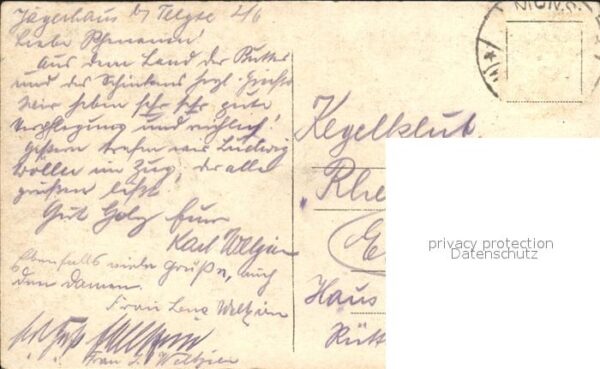 Jägerhaus b/ Telgte 2/6
Liebe Rhenanen!
Aus dem Land der Butter
und des Schinkens herzl. Grüße
Wir haben sehr sehr gute
Verpflegung und reichlich!
Gestern trafen wir Ludwig
Wöller im Zug, der alle
grüßen läßt
Gut Holz Euer
Karl Weltzien
Ebenfalls viele Grüße, auch
den Damen.
Frau Lena Weltzien
Frau L. Weltzien
MÜNS
Kegelklub
Rhe
E
Haus
Rütt
privacy protection
Datenschutz